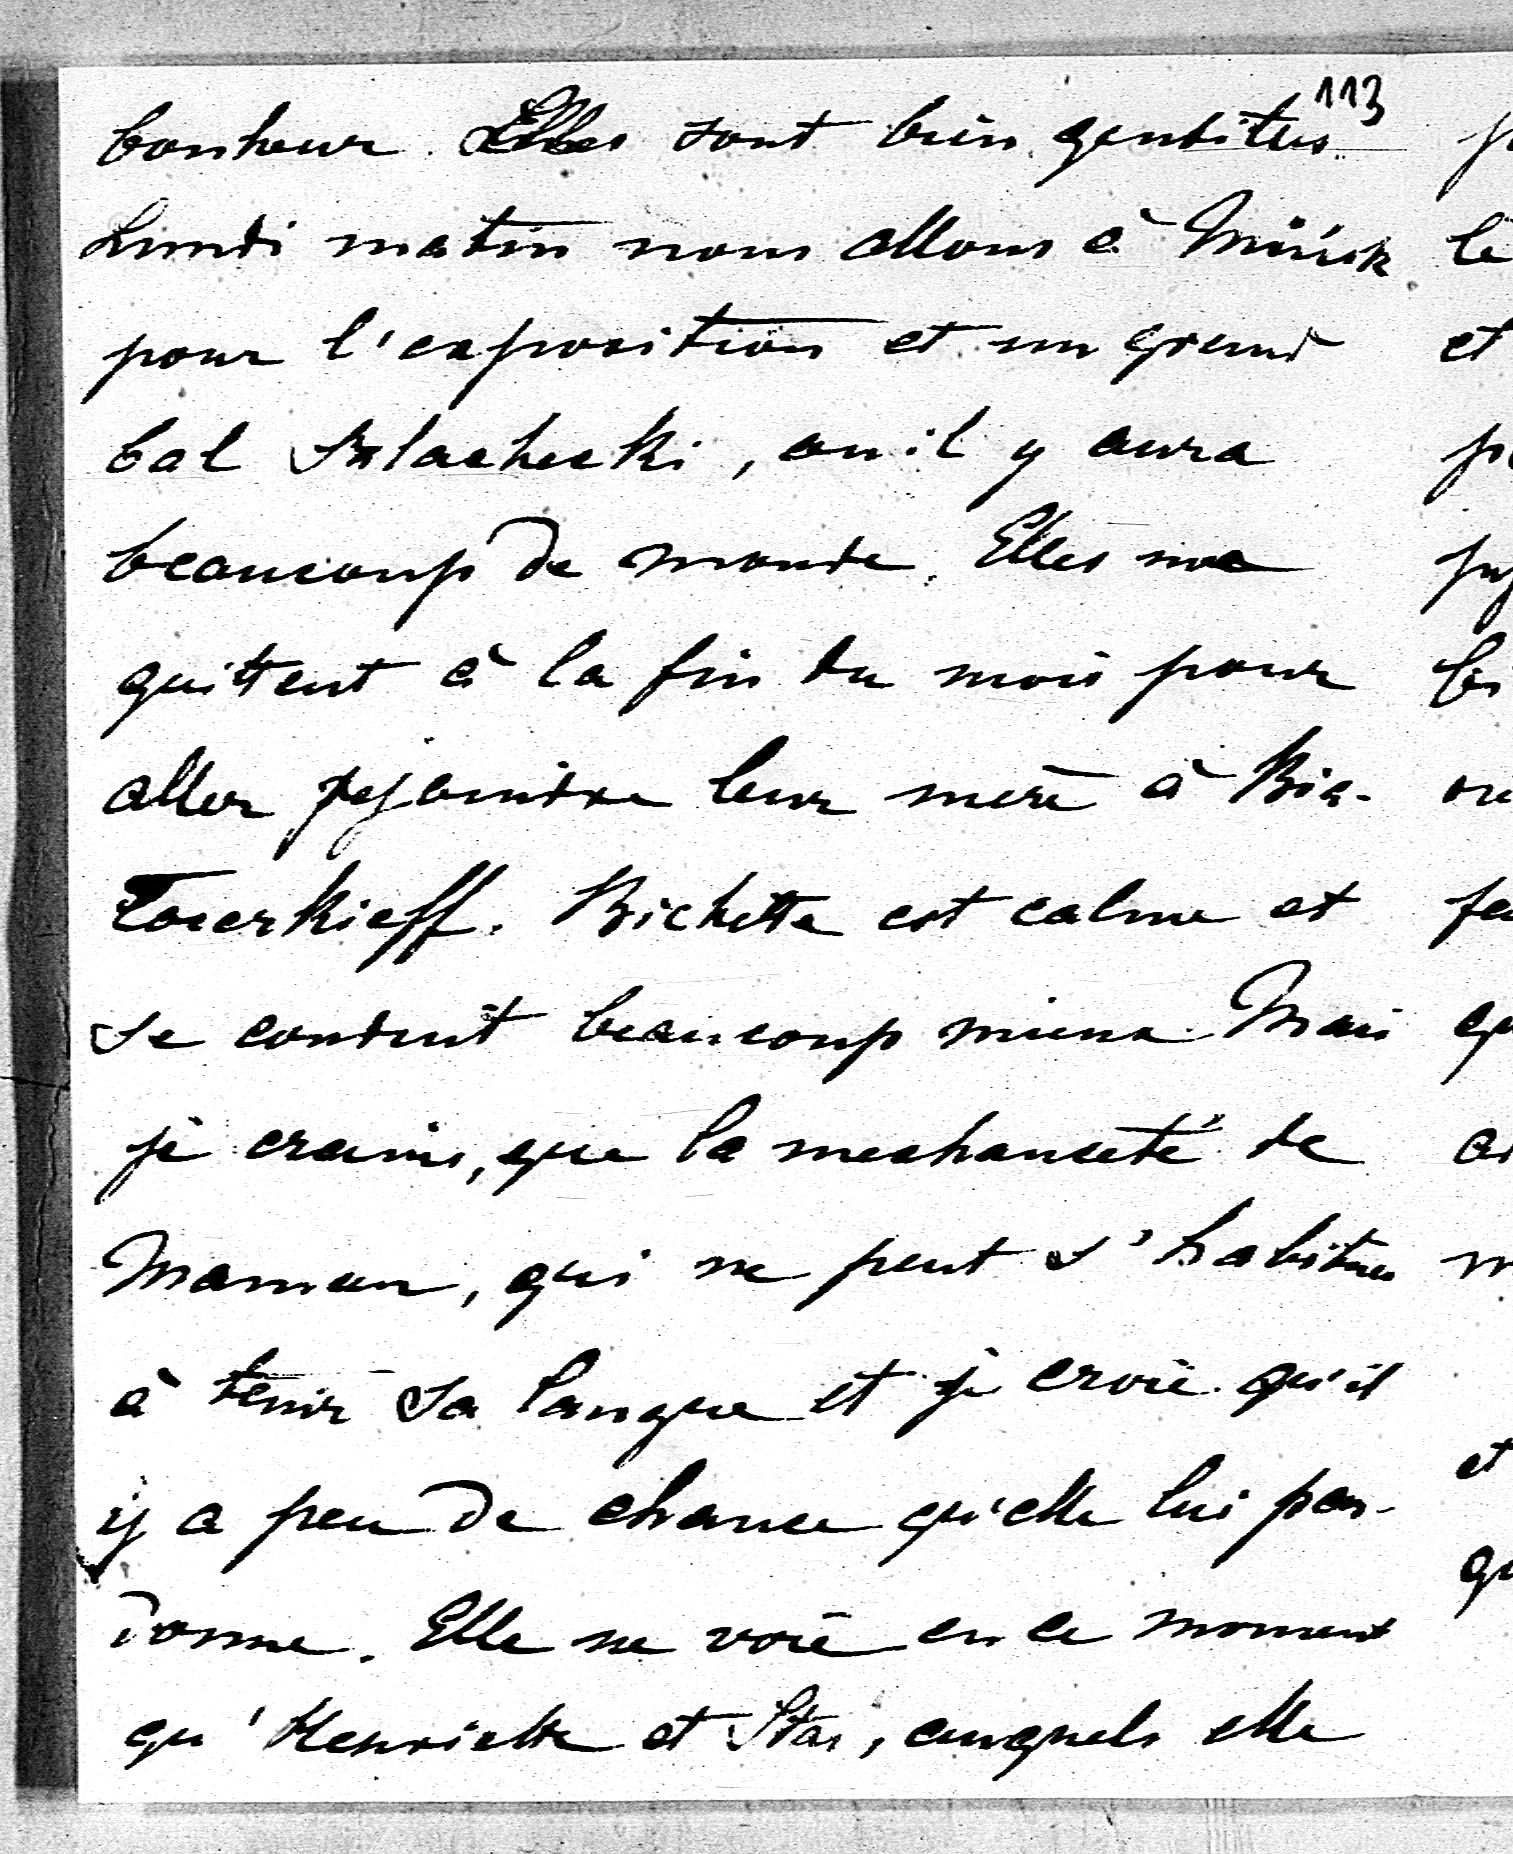 113
bonheur. Elles sont bien gentilles
Lundi matin nous allons à Mińsk
pour l'exposition et un grand
bal Szlachecki, ou il y aura
beaucoup de monde. Elles me
quittent à la fin du mois pour
aller rejoindre leur mère à Bia-
Cerkieff. Bichette est calme et
se conduit beaucoup mieux. Mais
je crains, que la mechanceté de
Maman, qui ne peut s'habituer
à tenir sa langue et je crois qu'il
y a peu de chance qu'elle lui par-
donne. Elle ne voie en ce moment
qu'Henriette et Stas, auxquels elle